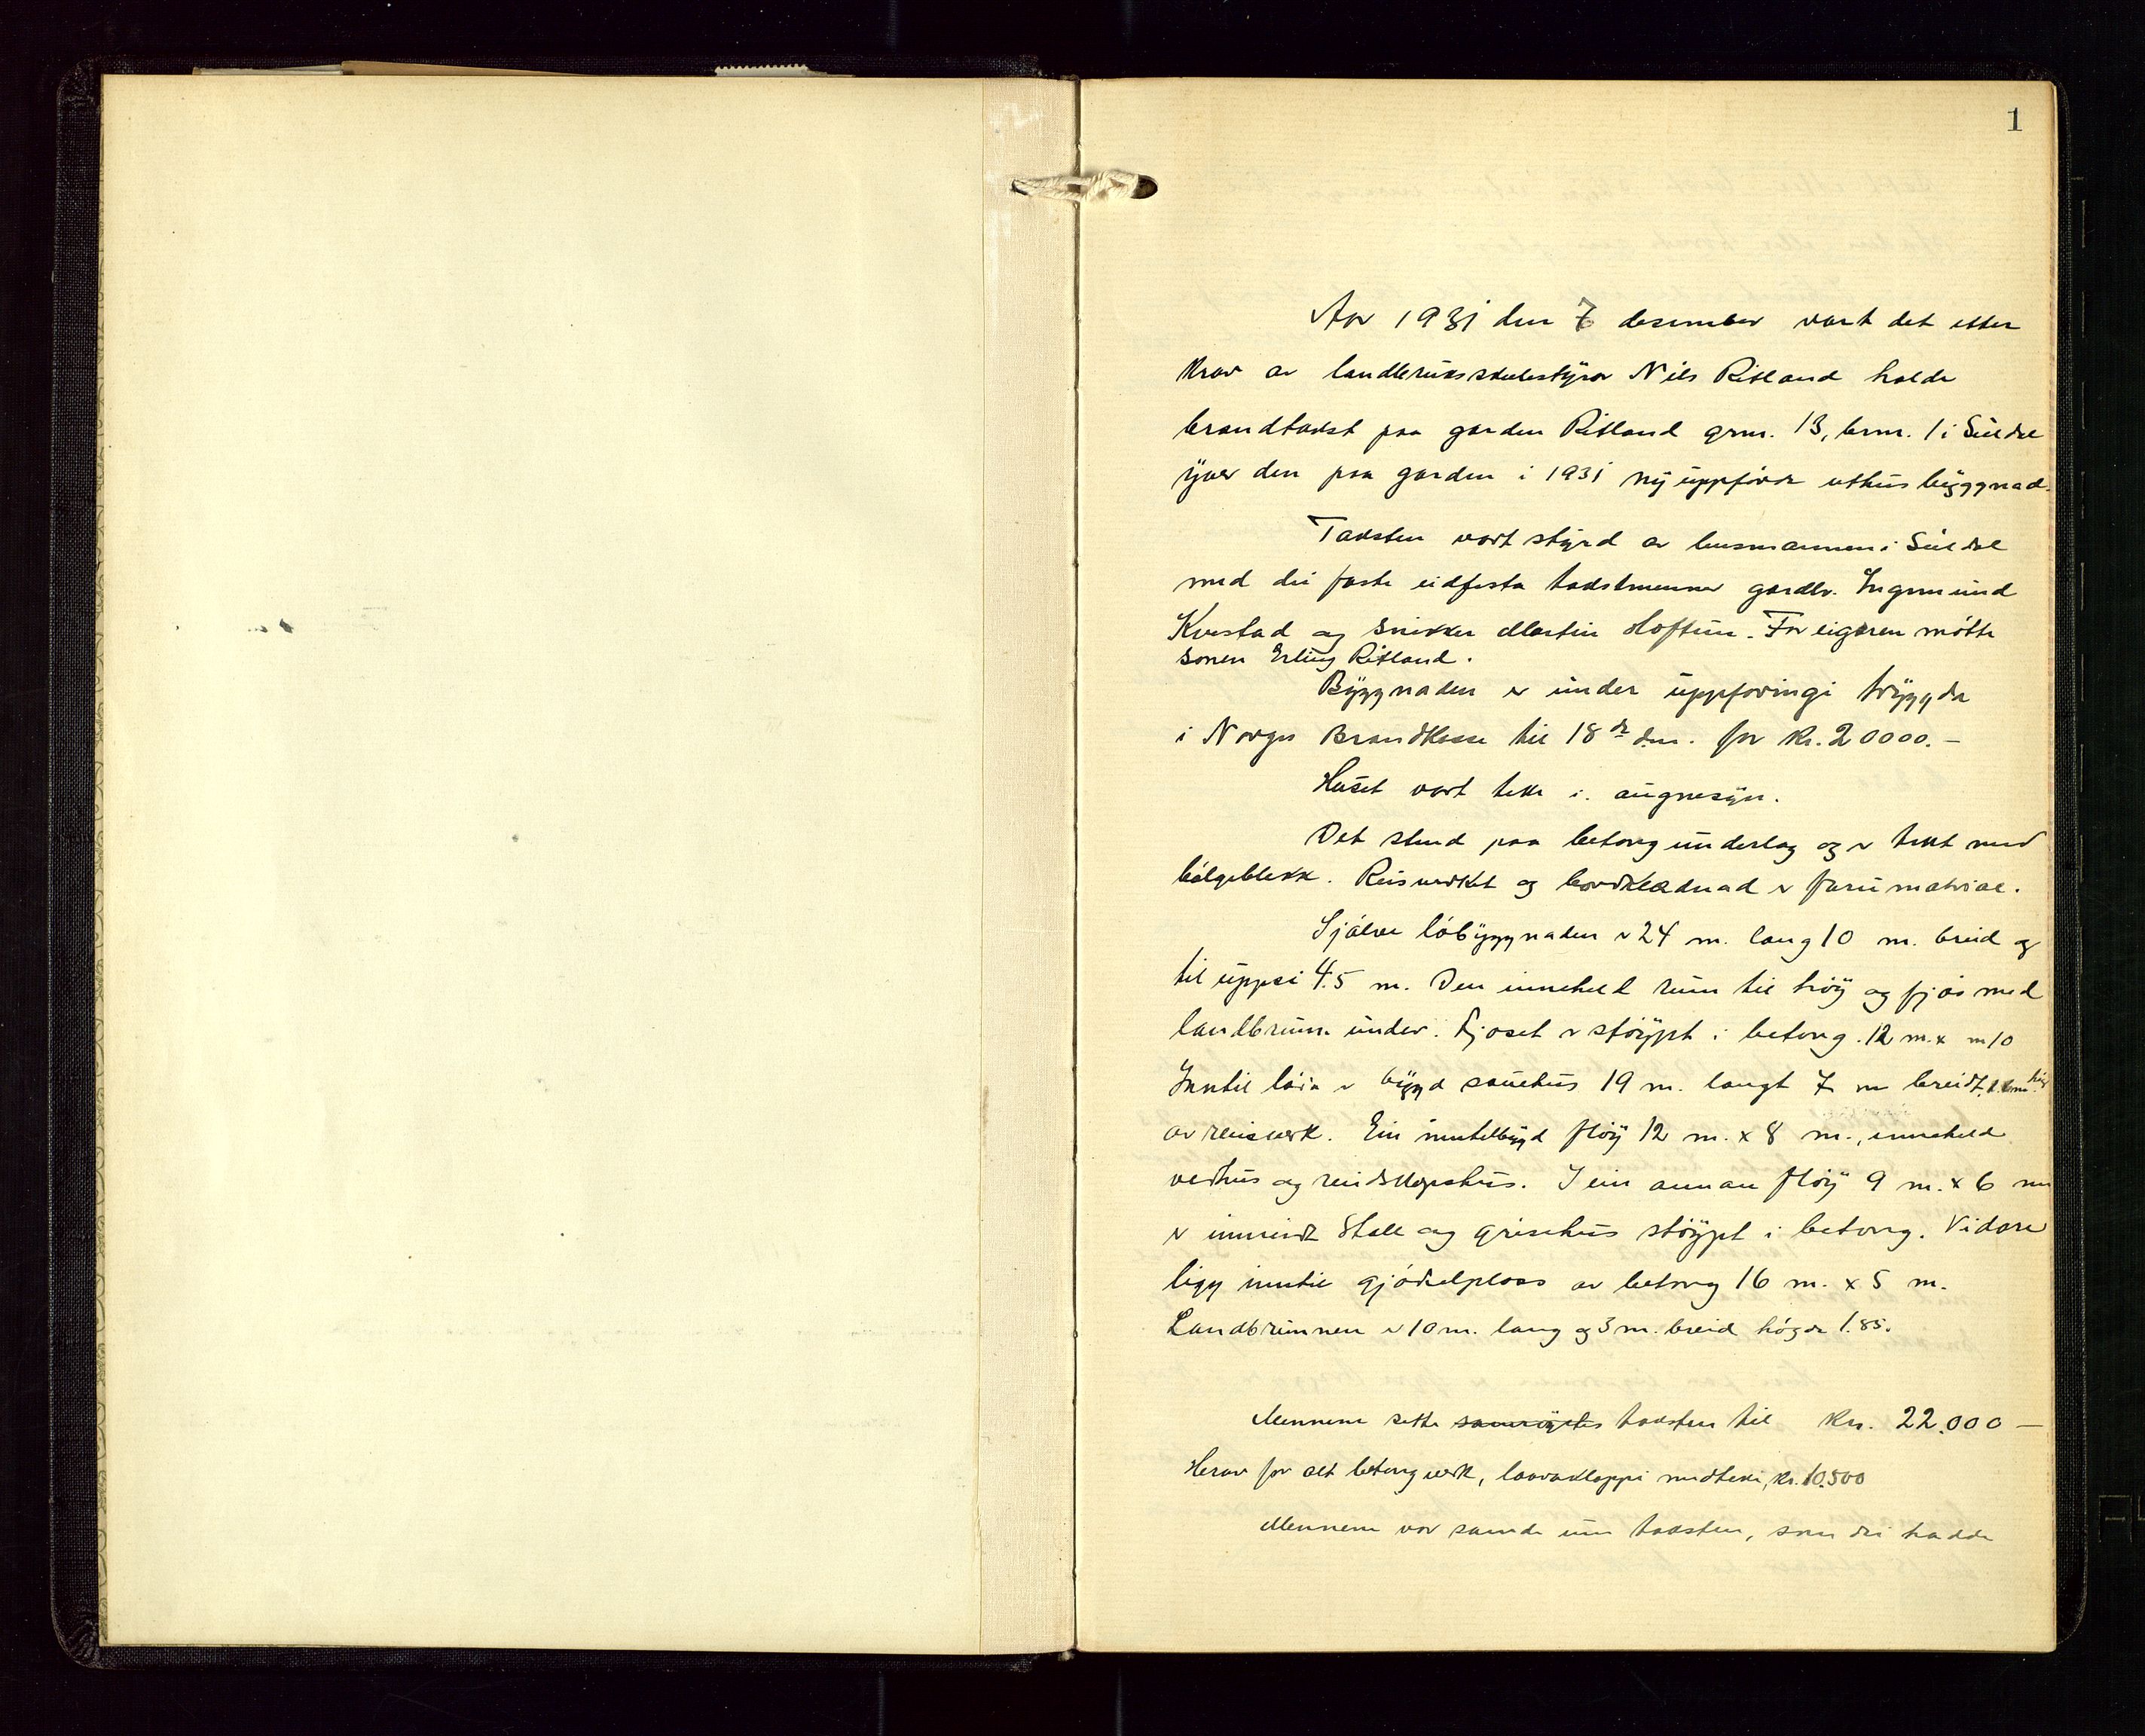 1
Aar 1931 den 7 desember vart det etter
krav av landbruksskulestyrar Nils Ritland halde
brandtakst paa garden Ritland grnr. 13, brnr. 1 i Suldal
yver den paa garden i 1931 ny uppførde uthusbyggnad.
Taksten vart styrd av lensmannen i Suldal
med dei faste eidfesta takstmenner gardbr. Ingemund
Kvestad og snikker Martin Hoftun. For eigaren møtte
sonen Erling Ritland.
Byggnaden er under uppføringi trygda
i Norges Brandkasse til 18de dm. for kr. 20000.-
Huset vart teke i augnesyn.
Det stend paa betongunderlag og er tekt med
bølgeblekk. Reisverket og bordklædnad er furumatrial.
Sjølve løbyggnaden er 24 m. lang 10 m. breid og
til uppsi 4.5 m. Den inneheld rum til høy og fjøs med
landbrunn under. Fjøset er støypt i betong. 12 m. x m 10
Inntil løa er bygd sauehus 19 m. langt 7 m breidt, høg
av reisverk. Ein inntilbygd fløy 12 m. x 8 m., inneheld
vedhus og reidskapshus. I ein annan fløy 9 m. x 6 m
er innreidt stall og grisehus støypt i betong. Vidare
ligg inntil gjødselplass av betong 16 m. x 5 m.
Landbrunnen er 10 m. lang og 3 m. breid høgde 1.85.
Mennene sette samrøystes taksten til kr. 22.000 —
Herav for alt betongverk, laavakloppi medteki, kr. 10.500
Mennene var samde um taksten, som dei hadde